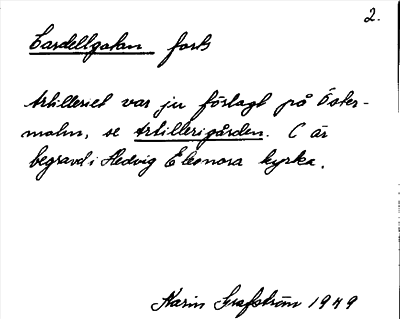 2.
Cardellgatan forts
Artilleriet var ju förlagt på Öster-
malm, se Artillerigården. C är
begravd i Hedvig Eleonora kyrka.
Karin Grafström 1949